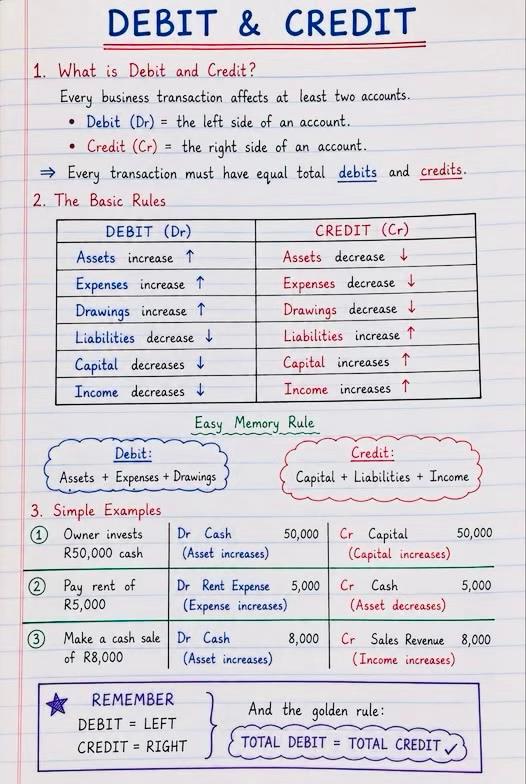 DEBIT & CREDIT
1. What is Debit and Credit?
Every business transaction affects at least two accounts.
• Debit (Dr) = the left side of an account.
• Credit (Cr) = the right side of an account.
⇒ Every transaction must have equal total debits and credits.
2. The Basic Rules
DEBIT (Dr) CREDIT (Cr)
Assets increase ↑ Assets decrease ↓
Expenses increase ↑ Expenses decrease ↓
Drawings increase ↑ Drawings decrease ↓
Liabilities decrease ↓ Liabilities increase ↑
Capital decreases ↓ Capital increases ↑
Income decreases ↓ Income increases ↑
Easy Memory Rule
Debit: Credit:
Assets + Expenses + Drawings Capital + Liabilities + Income
3. Simple Examples
1 Owner invests Dr Cash 50,000 Cr Capital 50,000
R50,000 cash (Asset increases) (Capital increases)
2 Pay rent of Dr Rent Expense 5,000 Cr Cash 5,000
R5,000 (Expense increases) (Asset decreases)
3 Make a cash sale Dr Cash 8,000 Cr Sales Revenue 8,000
of R8,000 (Asset increases) (Income increases)
REMEMBER
DEBIT = LEFT
CREDIT = RIGHT
And the golden rule:
TOTAL DEBIT = TOTAL CREDIT ✓